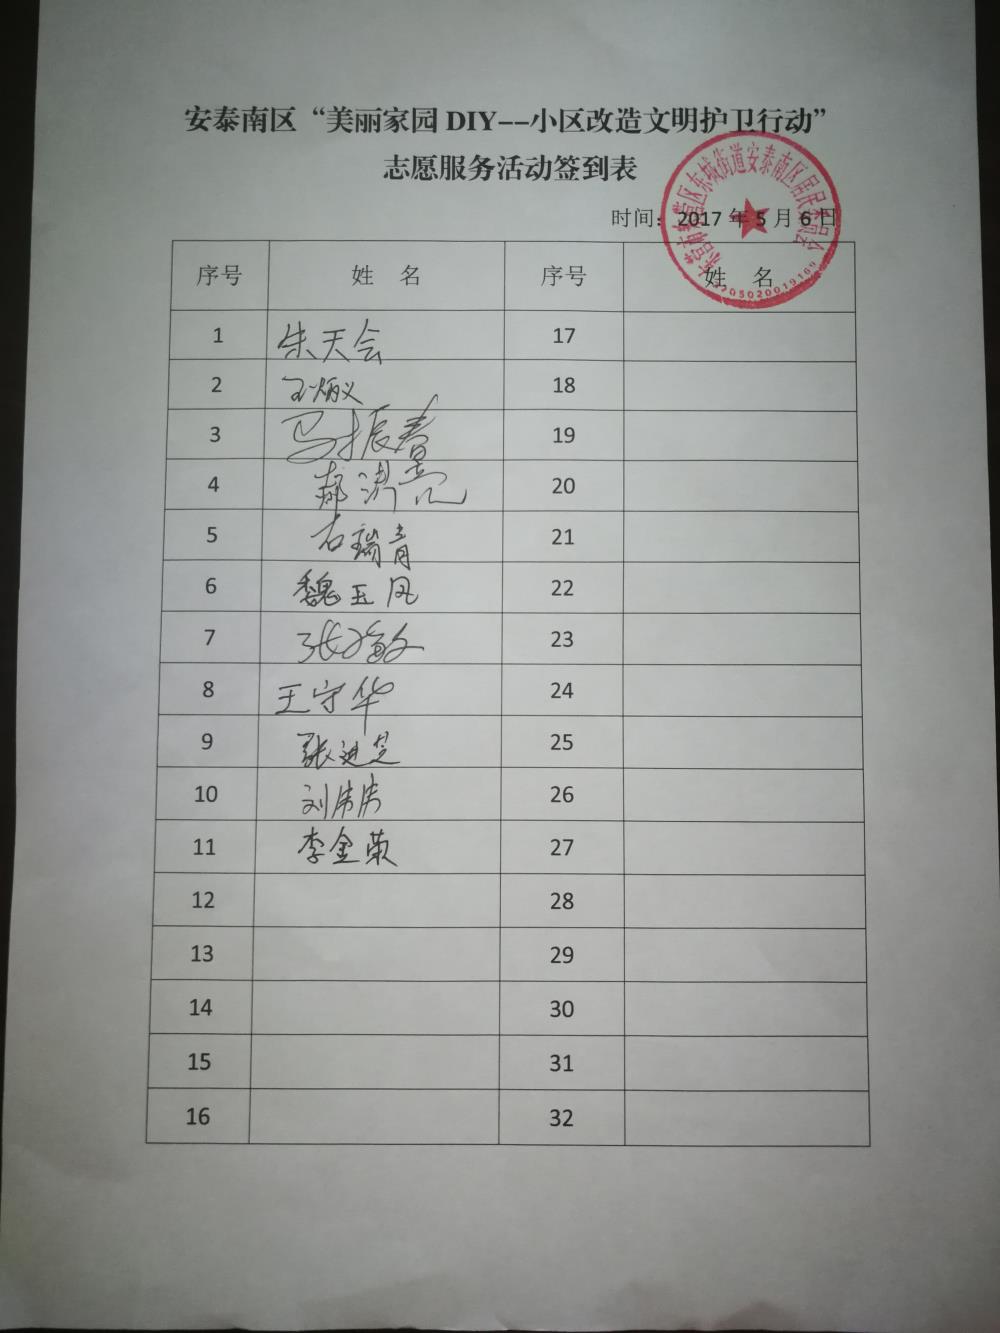 安泰南区“美丽家园 DIY--小区改造文明护卫行动”
志愿服务活动签到表
时间：2017 年 5 月 6 日
东城街道安泰南区居民委员会
3705020019169
序号 姓 名 序号 姓 名
1 朱天会 17
2 王炳义 18
3 马振春 19
4 郝洪亮 20
5 石瑞青 21
6 魏玉凤 22
7 张敏 23
8 王守华 24
9 张进芝 25
10 刘伟伟 26
11 李金荣 27
12 28
13 29
14 30
15 31
16 32